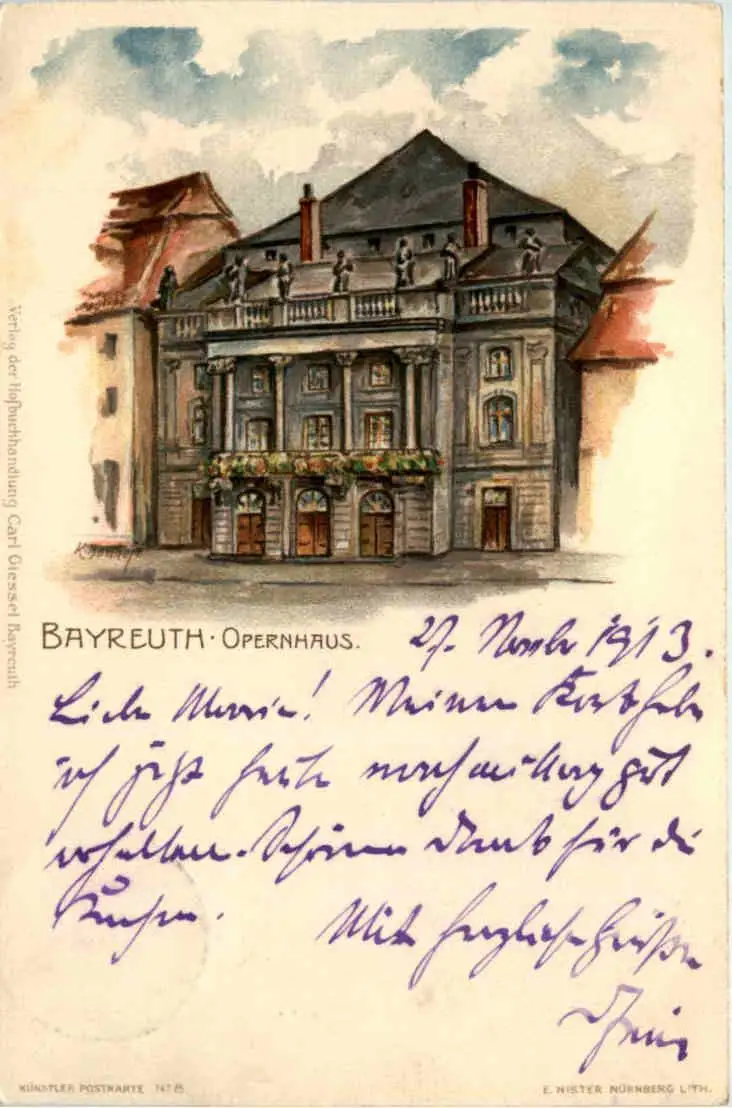 Verlag der Hofbuchhandlung Carl Giessel Bayreuth
BAYREUTH · OPERNHAUS.
27. Novemb 1913.
Liebe Marie! Meinen Korb habe
ich jetzt heute nachmittag gut
erhalten. Schönen Dank für die
Kuchen.
Mit herzlichen Grüßen
KÜNSTLER POSTKARTE
E. NISTER NÜRNBERG LITH.